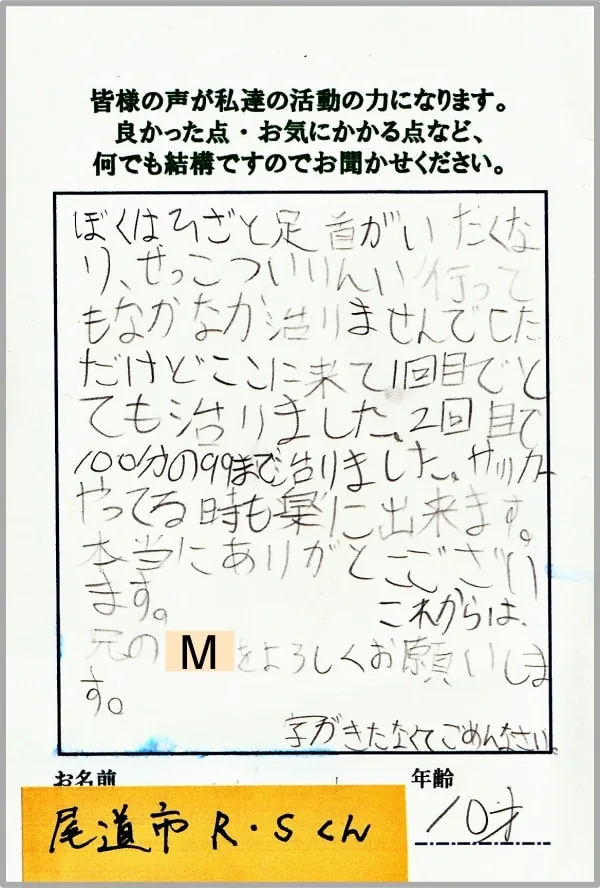 皆様の声が私達の活動の力になります。
良かった点・お気にかかる点など、
何でも結構ですのでお聞かせください。
ぼくはひざと足首がいたくな
り、せっこついりんい行って
もなかなか治りませんでした
だけどここに来て1回目でと
ても治りました。2回目で
100分の99まで治りました。サッカー
やってる時も楽に出来ます。
本当にありがとこございい
ます。
これからは、
兄の M をよろしくお願いしま
す。
字がきたなくてごめんなさい。
お名前
年齢
尾道市 R・Sくん
10才